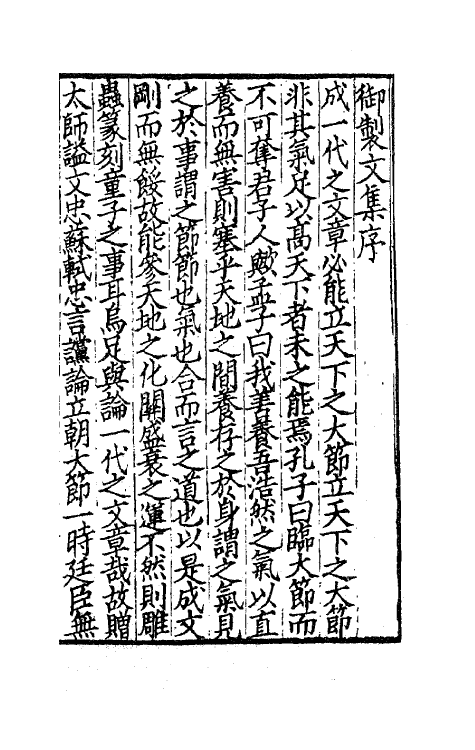 御製文集序
成一代之文章必能立天下之大節立天下之大節
非其氣足以髙天下者未之能焉孔子曰臨大節而
不可奪君子人歟孟子曰我善養吾浩然之氣以直
養而無害則塞乎天地之間養存之於身謂之氣見
之於事謂之節節也氣也合而言之道也以是成文
剛而無餒故能參天地之化關盛衰之運不然則雕
蟲篆刻童子之事耳烏足與論一代之文章哉故贈
太師謚文忠蘇軾忠言讜論立朝大節一時廷臣無